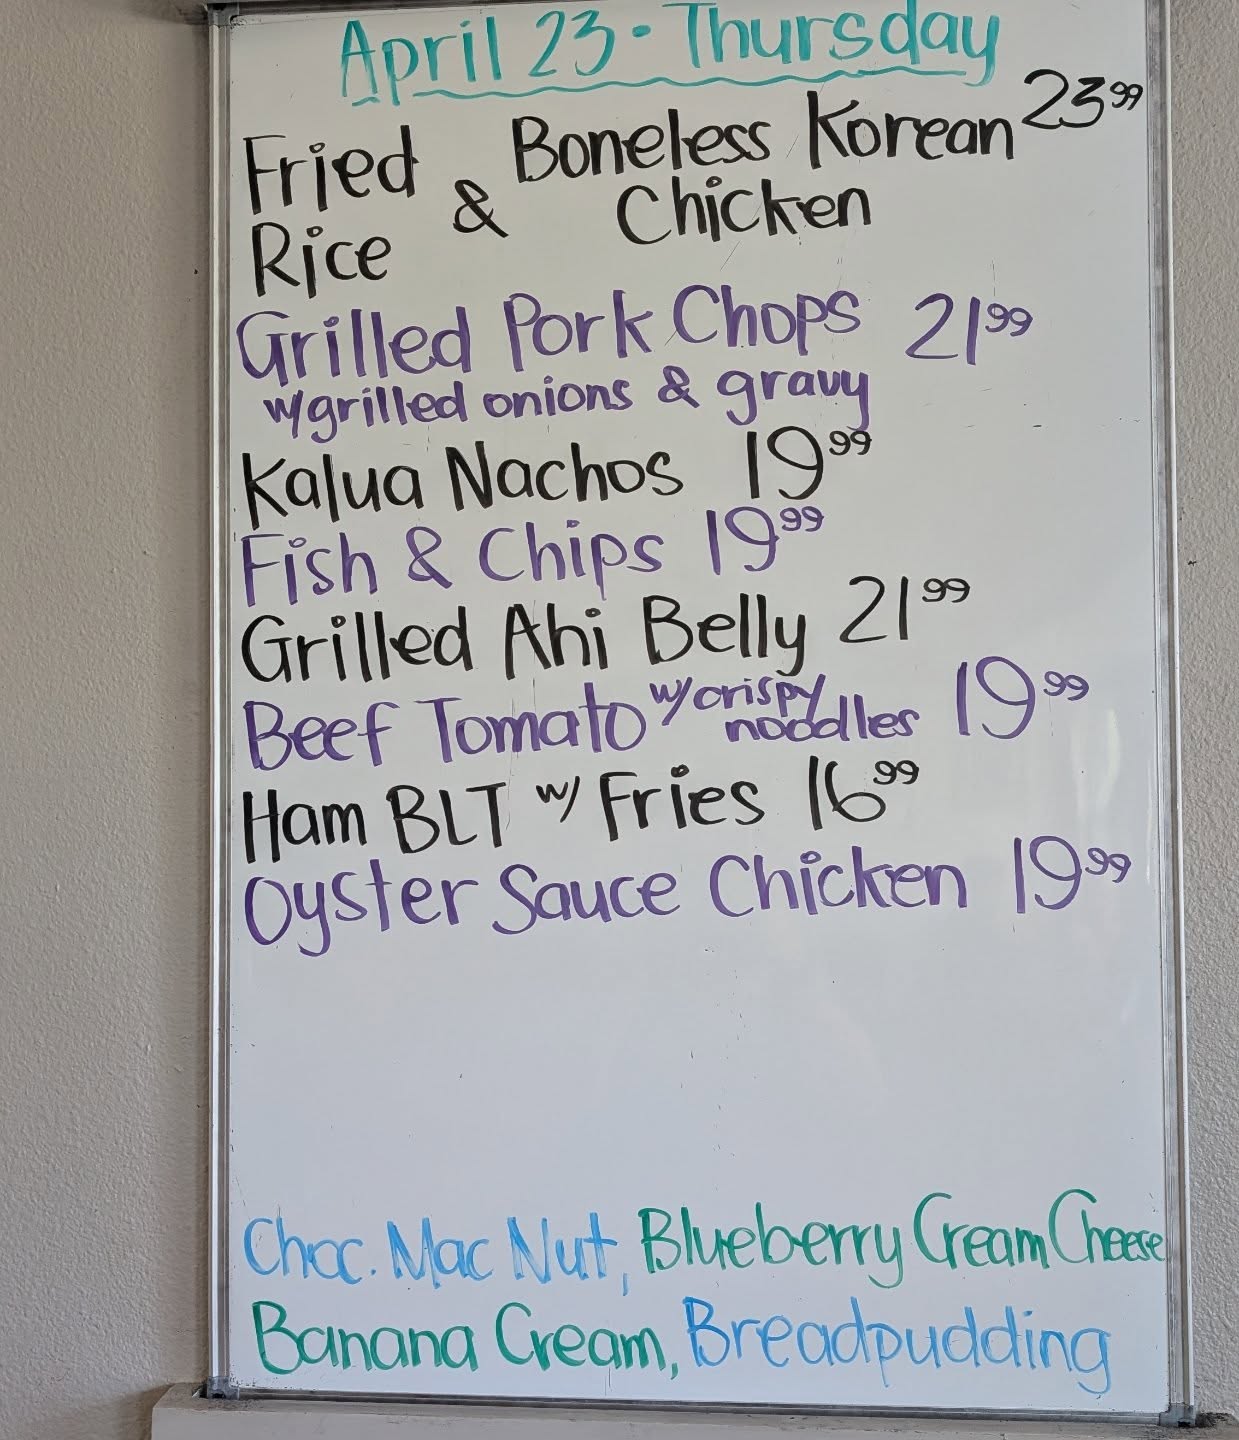 April 23 · Thursday
Fried Rice & Boneless Korean Chicken 23⁹⁹
Grilled Pork Chops 21⁹⁹
w/grilled onions & gravy
Kalua Nachos 19⁹⁹
Fish & Chips 19⁹⁹
Grilled Ahi Belly 21⁹⁹
Beef Tomato w/crispy noodles 19⁹⁹
Ham BLT w/ Fries 16⁹⁹
Oyster Sauce Chicken 19⁹⁹
Choc. Mac Nut, Blueberry Cream Cheese
Banana Cream, Breadpudding